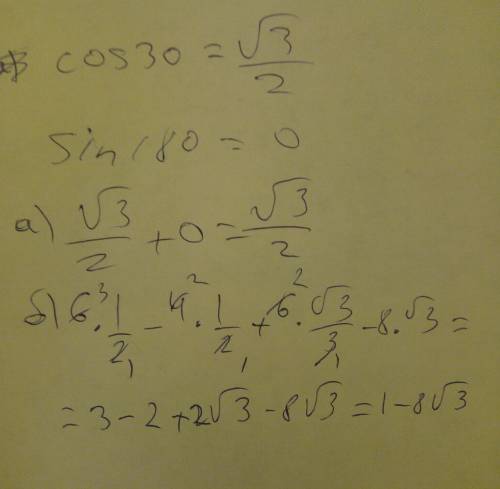 cos30 = √3/2
sin180 = 0
а) √3/2 + 0 = √3/2
б) 6³ · 1/2₁ - 4² · 1/2₁ + 6² · √3/3₁ - 8 · √3 =
= 3 - 2 + 2√3 - 8√3 = 1 - 8√3